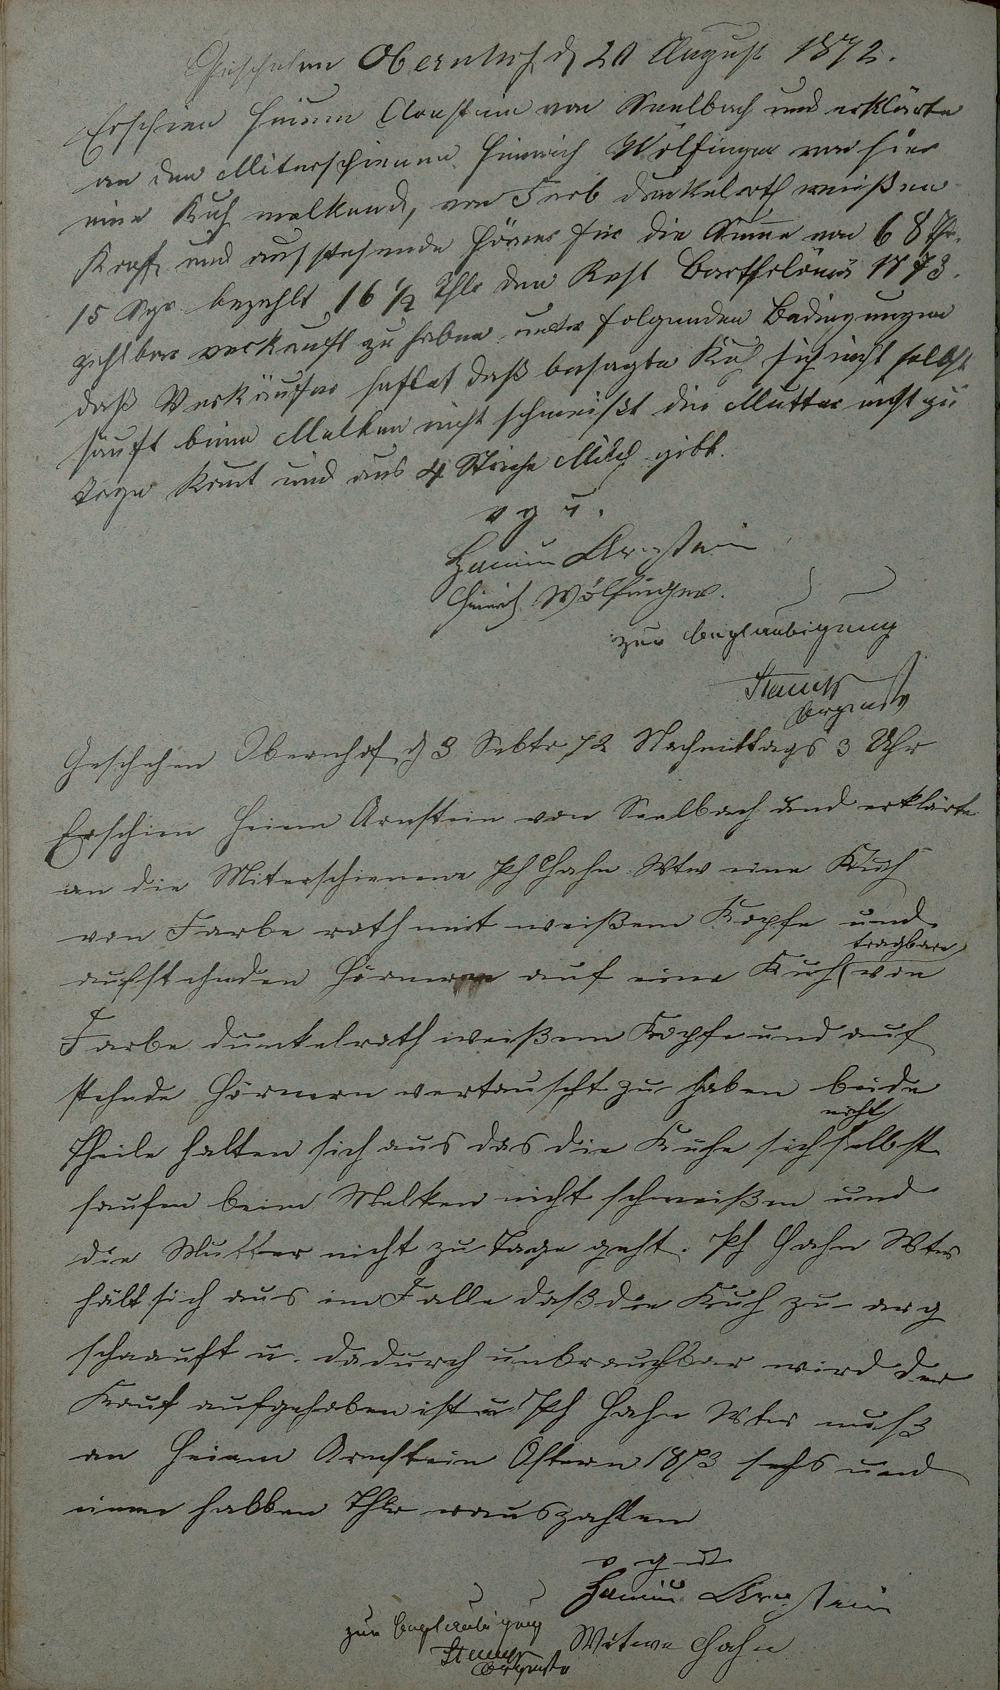 Geschehen Obernhof d 20 August 1872.
Erschien Heium Arnstein von Seelbach und erklärte
an den Miterschienen Heinrich Wölfinger von hier
eine Kuh melkend, von Farb dunkelroth weißen
Kopf und aufstehende Hörner für die Summe von 68 Thr.
15 Sgr bezahlt 16 1/2 Thlr den Rest Bartholömä 1873.
zahlbar verkauft zu haben unter folgenden Bedingungen
daß Verkäufer haftet daß besagte Kuh sich nicht selbst
säuft beim Melken nicht schmeißt die Mutter nicht zu
Tage komt und aus 4 Striche Milch gibt.
v g u.
Heium Arnstein
Heinrich Wölfinger.
zur beglaubigung
Geschehen Obernhof d 3 Sebtr 72 Nachmittags 3 Uhr
Erschien Heium Arnstein von Seelbach und erklärte
an die Miterschienene Ph Hahn Wtw eine Kuh
von Farbe roth mit weißem Kopfe und
tragbare
aufstehnden Hörnern auf eine Kuh von
Farbe dunkelroth weißem Kopfe und auf
stehnde Hörnern vertauscht zu haben beide
nicht
Theile halten sich aus das die Kuhe sich selbst
saufen beim Melken nicht schmeißen und
die Mutter nicht zu Tage geht. Ph Hahn Wtw
hält sich aus im Falle daß die Kuh zu arg
schnauft u. dadurch unbrauchbar wird der
Kauf aufgehoben ist u Ph Hahn Wtw muß
an Heium Arnstein Ostern 1873 sechs und
einen halben Thlr rauszahlen
v g u
Heium Arnstein
zur beglaubigung
Witwe Hahn